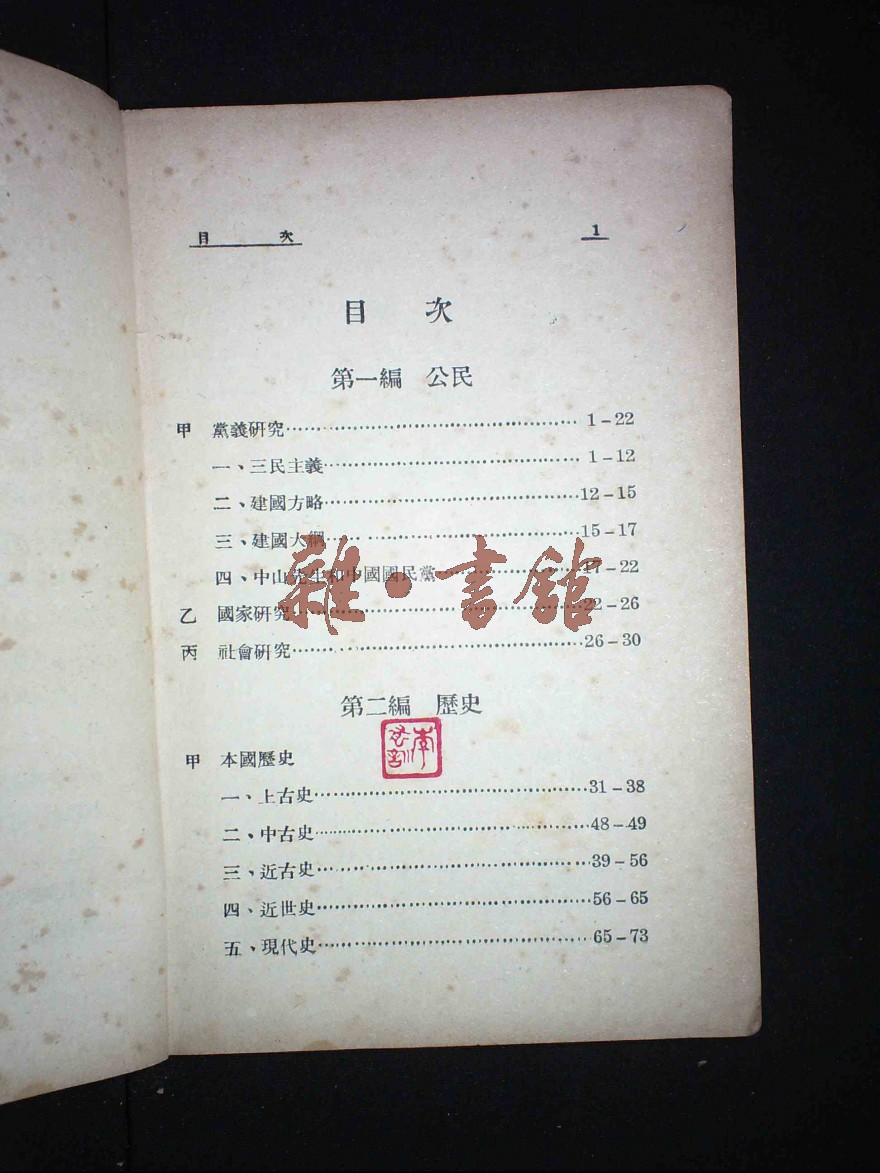 目 次 1
目 次
第一編 公民
甲 黨義研究 1-22
一、三民主義 1-12
二、建國方略 12-15
三、建國大綱 15-17
四、中山先生和中國國民黨 17-22
乙 國家研究 22-26
丙 社會研究 26-30
雜·書館
第二編 歷史
甲 本國歷史
一、上古史 31-38
二、中古史 48-49
三、近古史 39-56
四、近世史 56-65
五、現代史 65-73